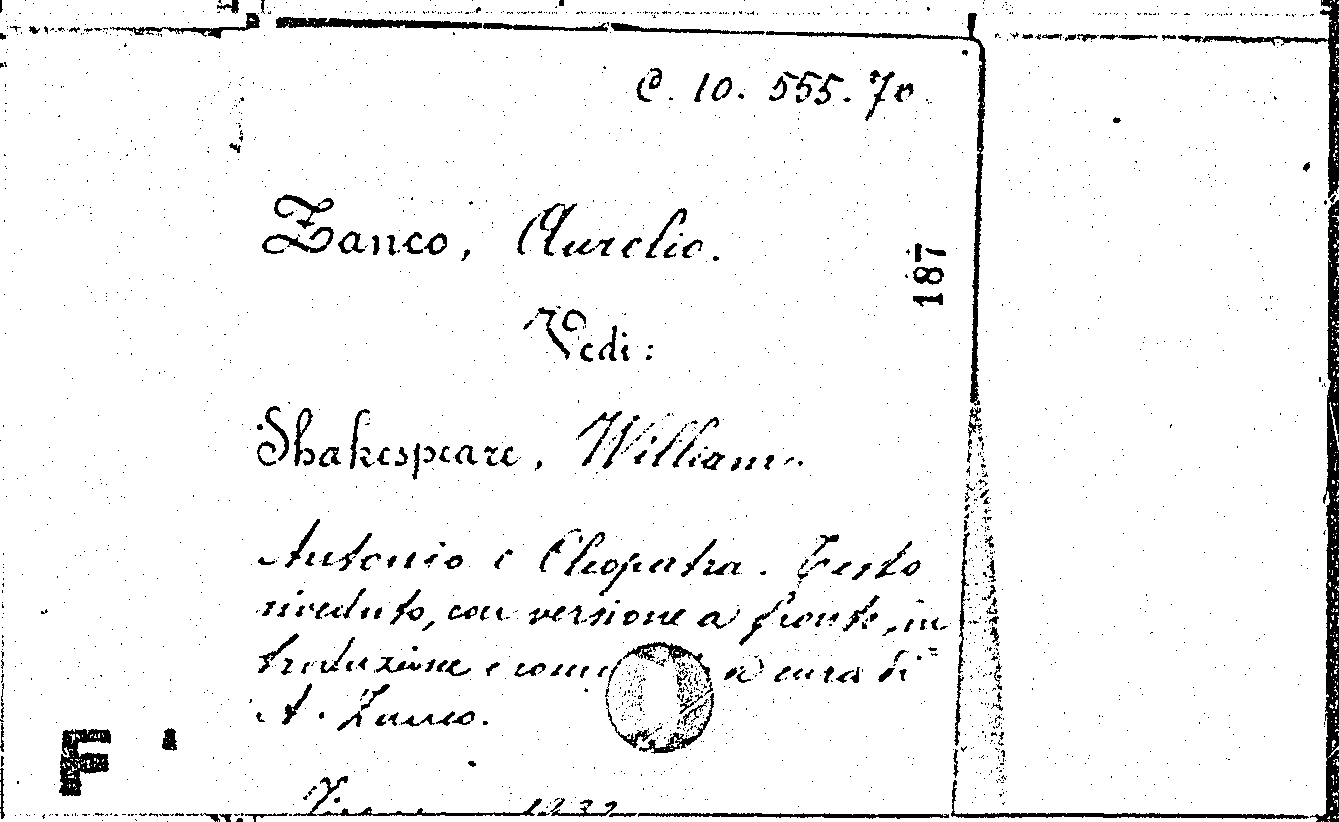 C. 10. 555. 70
Zanco, Aurelio.
187
Vedi:
Shakespeare, William.
Antonio e Cleopatra. Testo
riveduto, con versione a fronte, in=
troduzione e a cura di
A. Zanco.
F